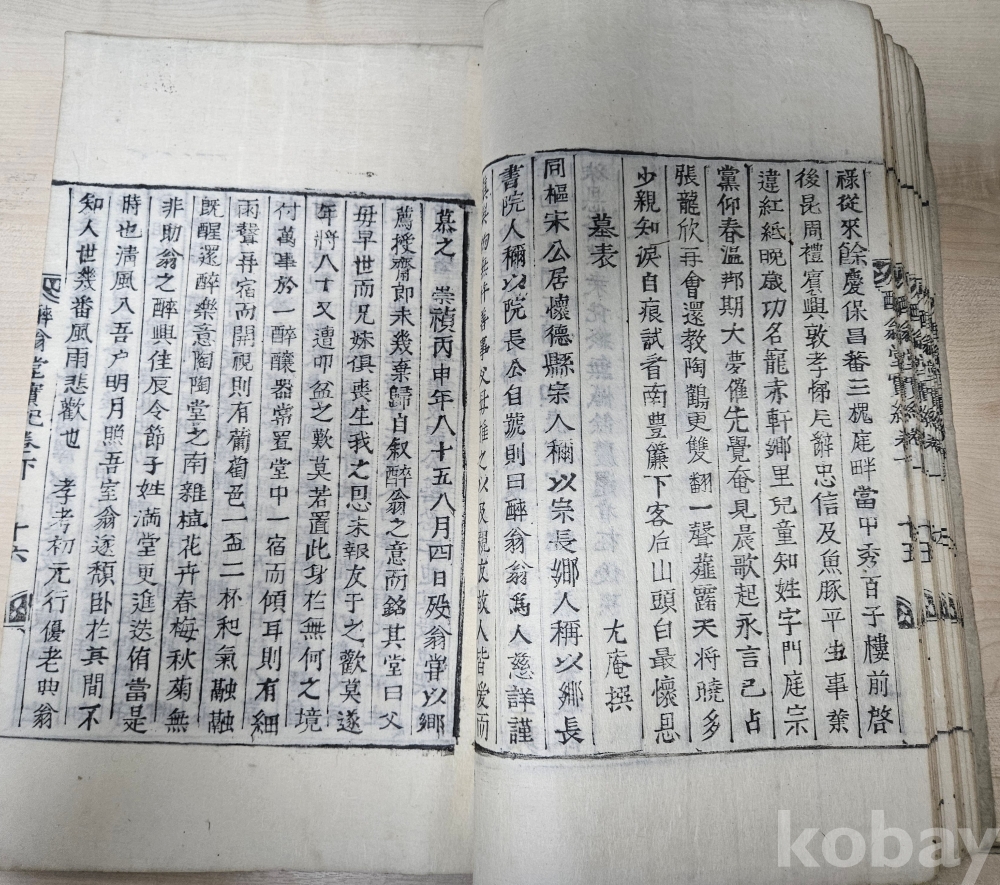 祿從來餘慶保昌蕃三槐庭畔當甲秀百子樓前啓
後昆周禮賓興敦孝悌戶辭忠信及魚豚平生事業
違紅紙晩歲功名龍赤軒鄕里兒童知姓字門庭宗
黨仰春溫邦期大夢催先覺奄見晨歌起永言己占
張龍欣再會還敎陶鶴更雙翻一聲薤露天将曉多
少親知淚自痕試看南豊簾下客后山頭白最懷恩
墓表 尢庵撰
同樞宋公居懷德縣宗人稱以宗長鄕人稱以鄕長
書院人稱以院長公自號則曰醉翁翁爲人慈詳謹
父母 之以 親 故人皆愛而
慕之 崇禎丙申年八十五八月四日殁翁甞以鄕
薦授齋郞未幾棄歸自叙醉翁之意而銘其堂曰父
毋早世而兄姊俱喪生我之恩未報友于之歡莫遂
年將八十又遭叩盆之歎莫若置此身於無何之境
付萬事於一醉釀器常置堂中一宿而傾耳則有細
雨聲再宿而開視則有葡萄色一盃二杯和氣融融
旣醒還醉樂意陶陶堂之南雜植花卉春梅秋菊無
非助翁之醉興佳辰令節子姓滿堂更進迭侑當是
時也淸風入吾户明月照吾室翁遂頹卧於其間不
知人世幾番風雨悲歡也 孝考初元行優老典翁
醉翁堂實紀卷下 十六
kobay